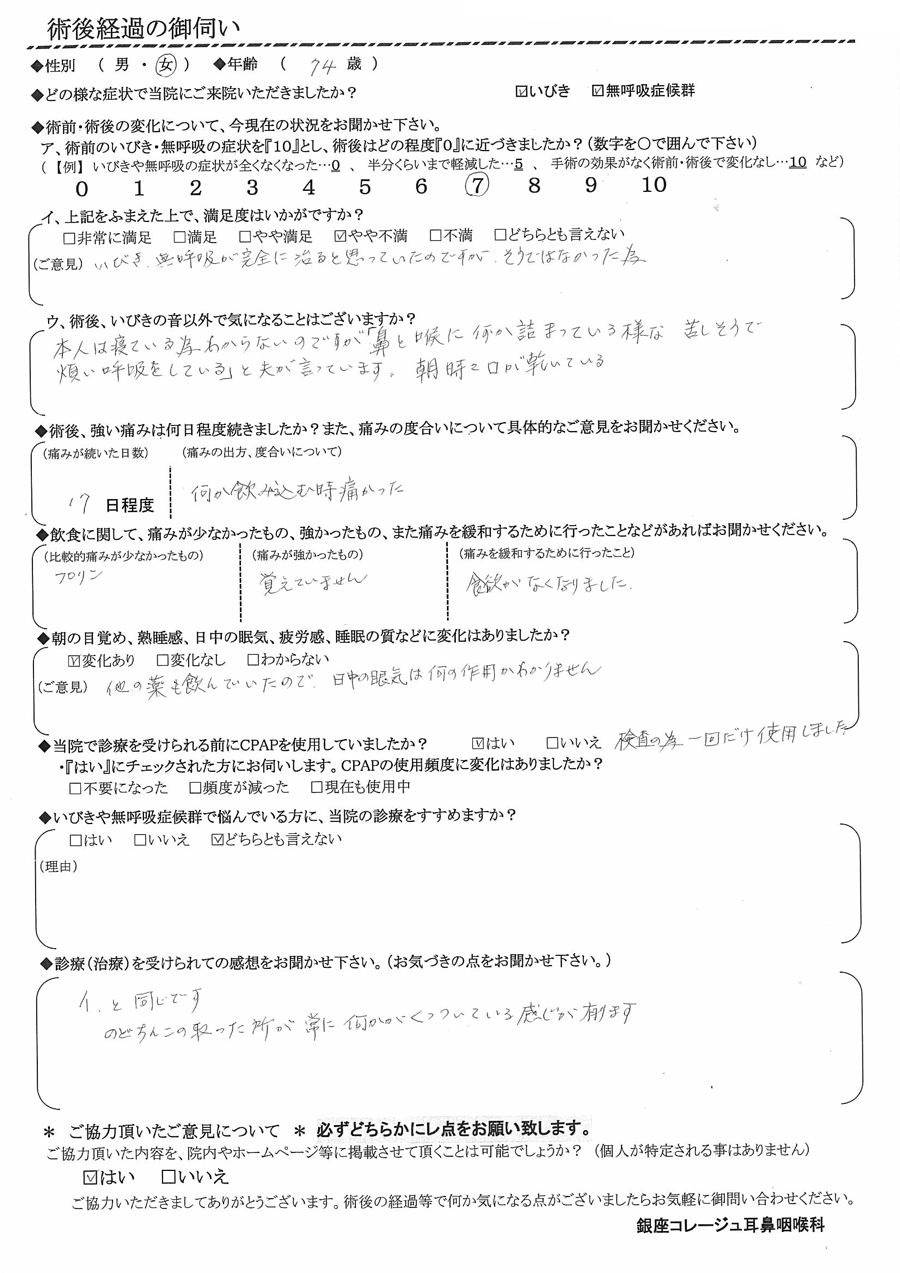 術後経過の御伺い
◆性別 ( 男 ・ 女 ) ◆年齢 ( 74 歳 )
◆どの様な症状で当院にご来院いただきましたか? ☑いびき ☑無呼吸症候群
◆術前・術後の変化について、今現在の状況をお聞かせ下さい。
ア、術前のいびき・無呼吸の症状を『10』とし、術後はどの程度『0』に近づきましたか?(数字を〇で囲んで下さい)
(【例】 いびきや無呼吸の症状が全くなくなった…0 、 半分くらいまで軽減した…5 、 手術の効果がなく術前・術後で変化なし…10 など)
0 1 2 3 4 5 6 7 8 9 10
イ、上記をふまえた上で、満足度はいかがですか?
□非常に満足 □満足 □やや満足 ☑やや不満 □不満 □どちらとも言えない
(ご意見) いびき、無呼吸が完全に治ると思っていたのですが、そうではなかった為
ウ、術後、いびきの音以外で気になることはございますか?
本人は寝ている為わからないのですが「鼻と喉に何か詰まっている様な 苦しそうで
煩い呼吸をしている」と夫が言っています。 朝時々口が乾いている
◆術後、強い痛みは何日程度続きましたか?また、痛みの度合いについて具体的なご意見をお聞かせください。
(痛みが続いた日数) (痛みの出方、度合いについて)
17 日程度 何か飲み込む時痛かった
◆飲食に関して、痛みが少なかったもの、強かったもの、また痛みを緩和するために行ったことなどがあればお聞かせください。
(比較的痛みが少なかったもの) (痛みが強かったもの) (痛みを緩和するために行ったこと)
プリン 覚えていません 食欲がなくなりました。
◆朝の目覚め、熟睡感、日中の眠気、疲労感、睡眠の質などに変化はありましたか?
☑変化あり □変化なし □わからない
(ご意見) 他の薬も飲んでいたので、日中の眠気は何の作用かわかりません
◆当院で診療を受けられる前にCPAPを使用していましたか? ☑はい □いいえ 検査の為一回だけ使用しました
・『はい』にチェックされた方にお伺いします。CPAPの使用頻度に変化はありましたか?
□不要になった □頻度が減った □現在も使用中
◆いびきや無呼吸症候群で悩んでいる方に、当院の診療をすすめますか?
□はい □いいえ ☑どちらとも言えない
(理由)
◆診療(治療)を受けられての感想をお聞かせ下さい。(お気づきの点をお聞かせ下さい。)
イ、と同じです
のどちんこの取った所が常に何かがくっついている感じが有ります
＊ ご協力頂いたご意見について ＊ 必ずどちらかにレ点をお願い致します。
ご協力頂いた内容を、院内やホームページ等に掲載させて頂くことは可能でしょうか? (個人が特定される事はありません)
☑はい □いいえ
ご協力いただきましてありがとうございます。術後の経過等で何か気になる点がございましたらお気軽に御問い合わせください。
銀座コレージュ耳鼻咽喉科